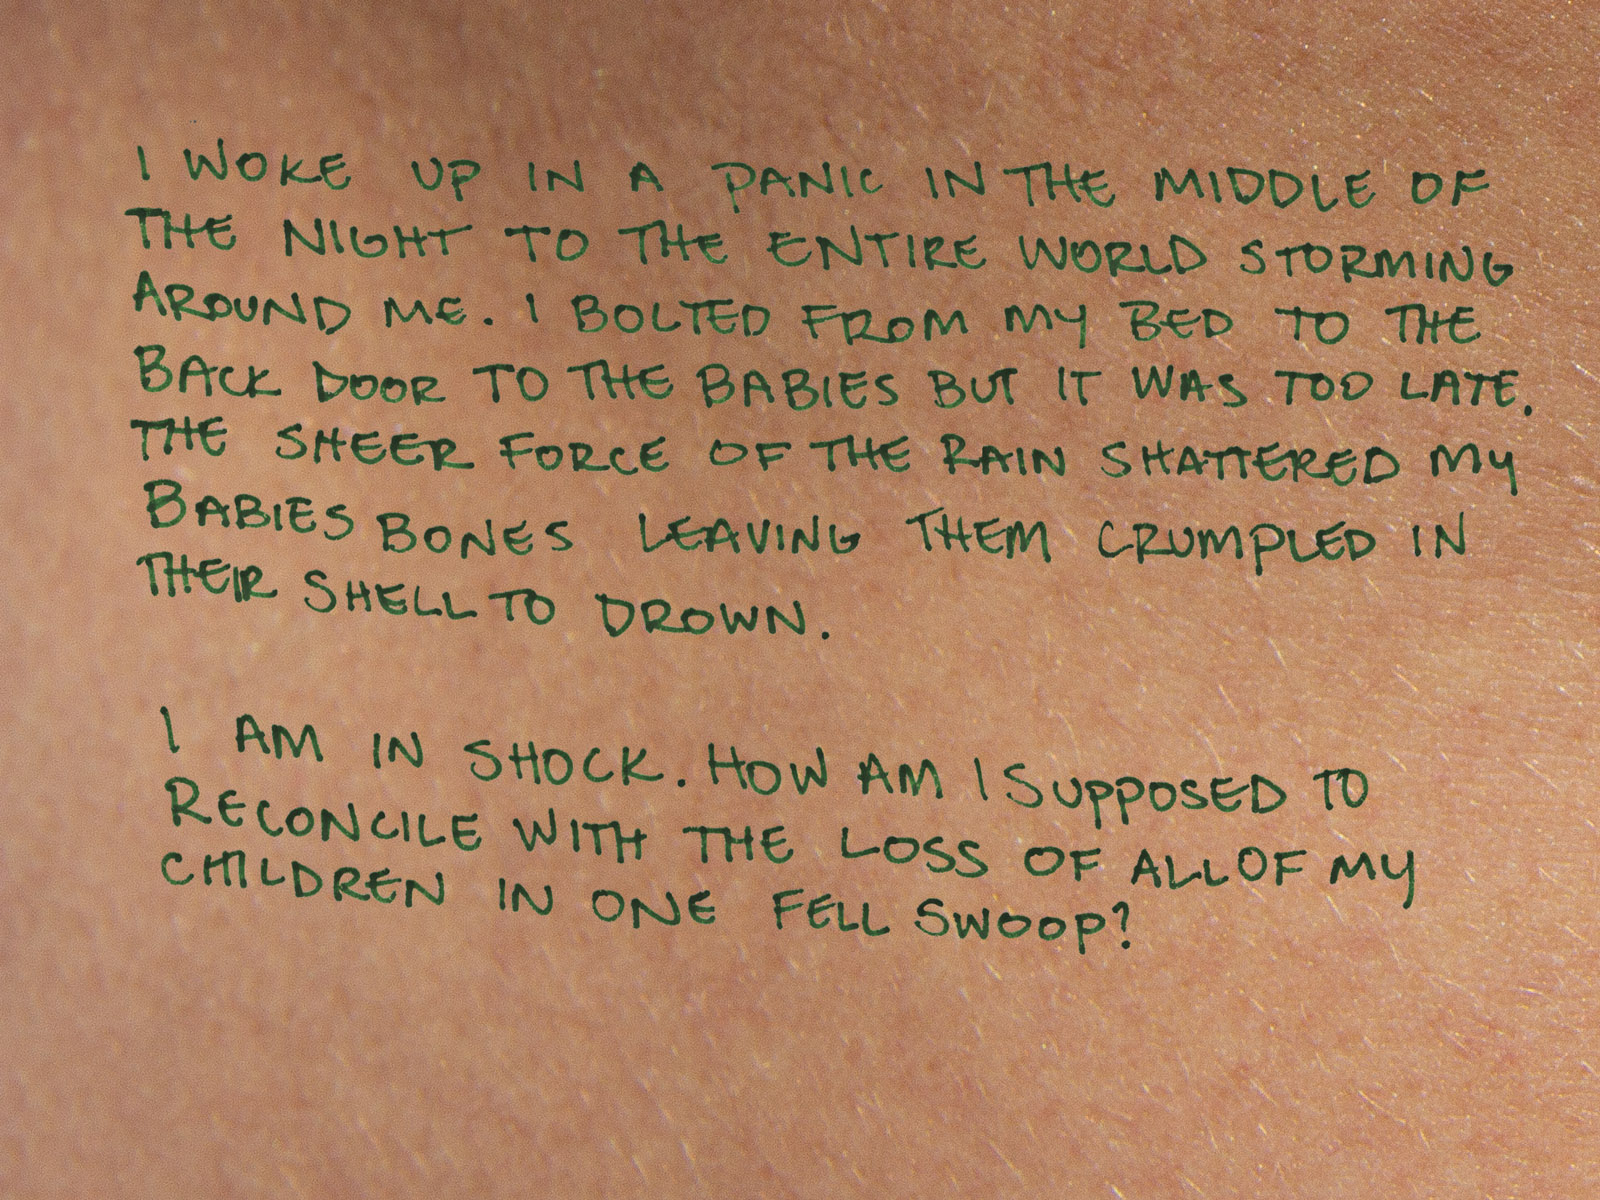 I WOKE UP IN A PANIC IN THE MIDDLE OF
THE NIGHT TO THE ENTIRE WORLD STORMING
AROUND ME. I BOLTED FROM MY BED TO THE
BACK DOOR TO THE BABIES BUT IT WAS TOO LATE.
THE SHEER FORCE OF THE RAIN SHATTERED MY
BABIES BONES LEAVING THEM CRUMPLED IN
THEIR SHELL TO DROWN.
I AM IN SHOCK. HOW AM I SUPPOSED TO
RECONCILE WITH THE LOSS OF ALL OF MY
CHILDREN IN ONE FELL SWOOP?